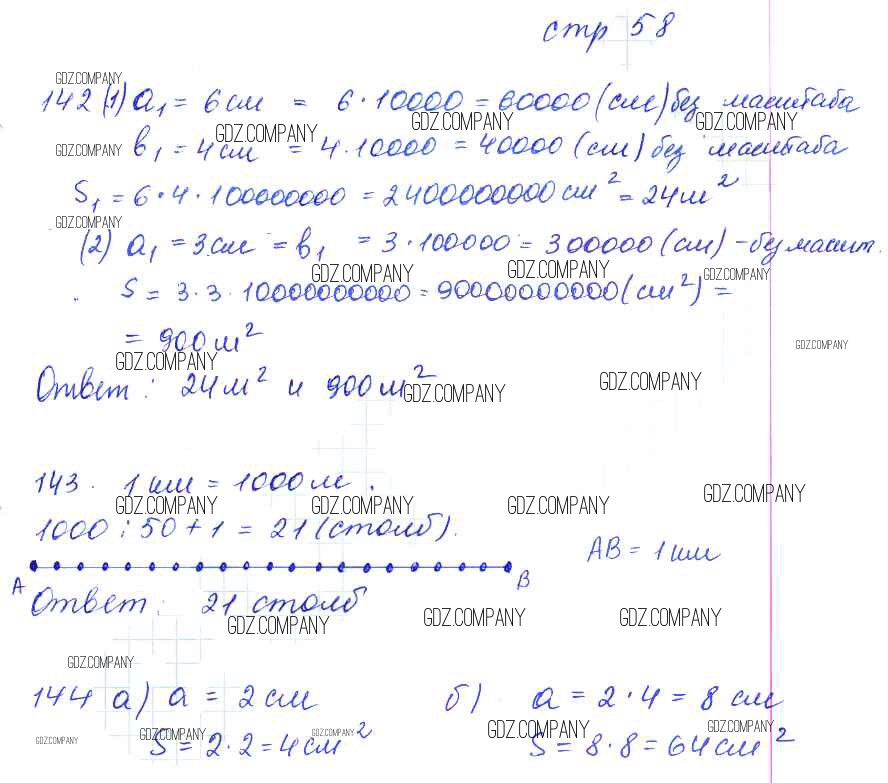 стр 58
GDZ.COMPANY
142 (1) a₁ = 6 см = 6·10000 = 60000 (см) без масштаба
GDZ.COMPANY GDZ.COMPANY GDZ.COMPANY
GDZ.COMPANY b₁ = 4 см = 4·10000 = 40000 (см) без масштаба
S₁ = 6·4·100000000 = 2400000000 см² = 24 м²
GDZ.COMPANY
(2) a₁ = 3 см = b₁ = 3·100000 = 300000 (см) - без масшт.
GDZ.COMPANY GDZ.COMPANY GDZ.COMPANY
S = 3·3·10000000000 = 90000000000 (см²) =
= 900 м²
GDZ.COMPANY
GDZ.COMPANY
Ответ: 24 м² и 900 м²
GDZ.COMPANY GDZ.COMPANY
143. 1 км = 1000 м.
GDZ.COMPANY GDZ.COMPANY GDZ.COMPANY GDZ.COMPANY
1000 : 50 + 1 = 21 (столб).
AB = 1 км
A B
Ответ: 21 столб
GDZ.COMPANY GDZ.COMPANY GDZ.COMPANY
GDZ.COMPANY
144 а) a = 2 см б) a = 2·4 = 8 см
GDZ.COMPANY GDZ.COMPANY GDZ.COMPANY GDZ.COMPANY GDZ.COMPANY
S = 2·2 = 4 см² S = 8·8 = 64 см²